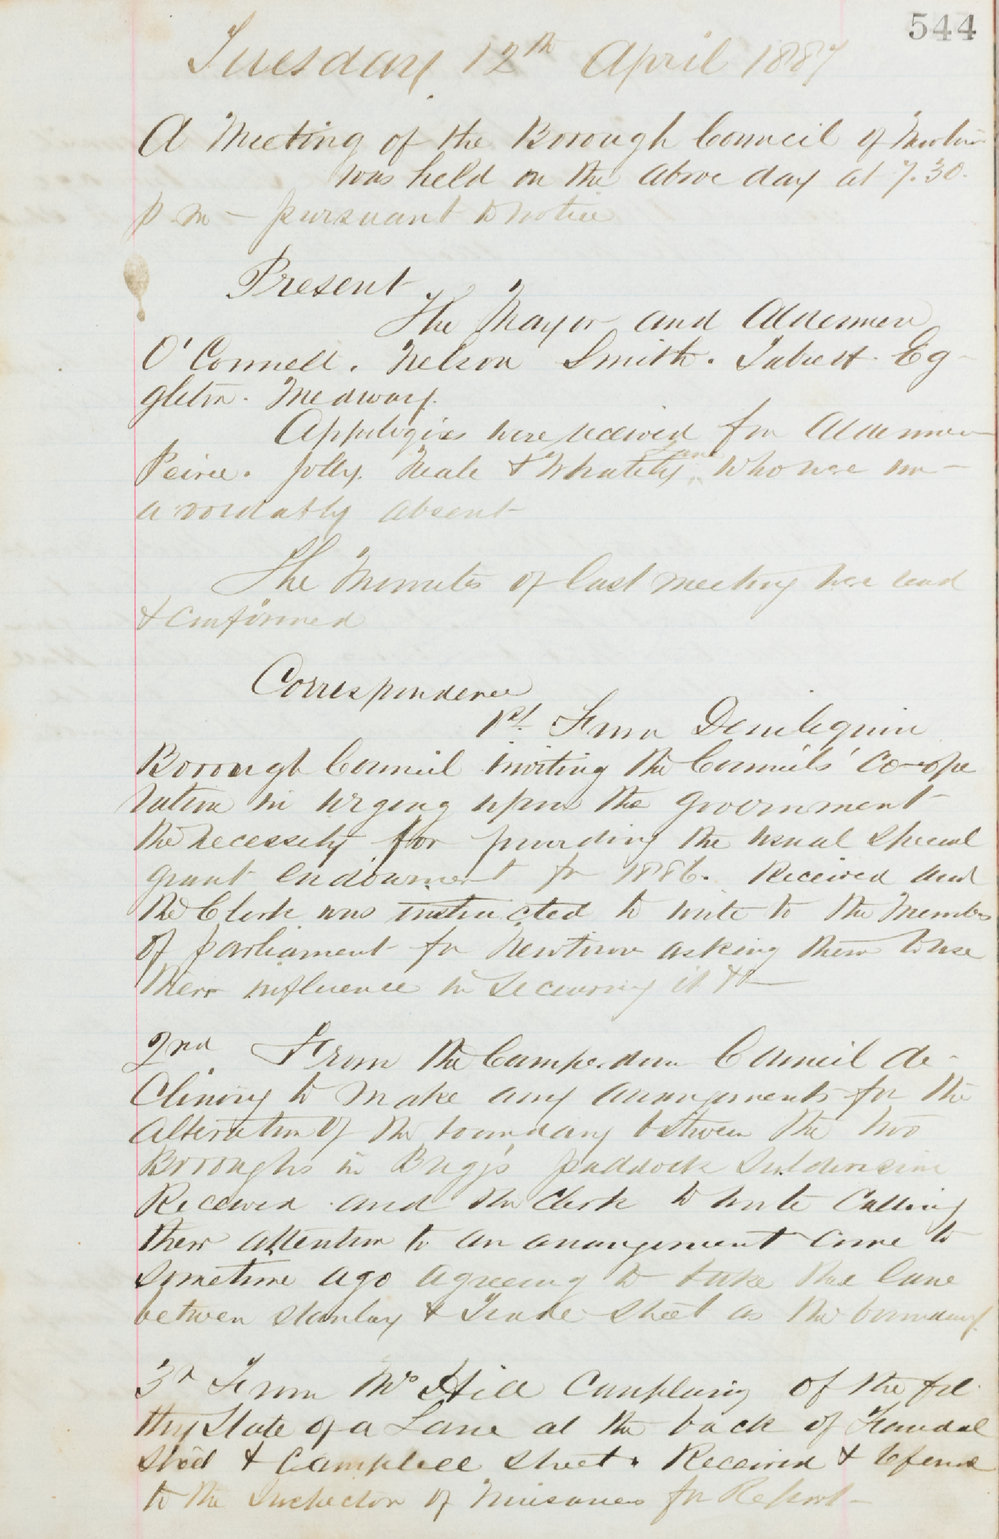 544
Tuesday 12th April 1887
A Meeting of the Borough Council of Newtown
was held on the above day at 7.30.
p m - pursuant to notice
Present
The Mayor and Aldermen
O'Connell. Nelson Smith. Eg-
gleton. Medway.
Appologies were received for Aldermen
Peirce. Jolly. Neale & Whately who were un-
avoidably absent
The Minutes of last meeting were read
& confirmed
Correspondence
1st. From Deniliquin
Borough Council inviting the Councils' co-ope
ration in urging upon the Government
the necessity for providing the usual special
grant endowment for 1886. Received and
the Clerk was instructed to write to the Members
of parliament for Newtown asking them to use
their influence in securing it &c
2nd From the Camperdown Council de-
clining to make any arrangements for the
alteration of the boundary between the two
Boroughs in Bligh's paddock Subdivision
Received and the Clerk to write calling
their attention to an arrangement come to
sometime ago agreeing to take the lane
between Stanley & Trade Street as the boundary.
3rd From Mrs Hill Complaing of the fil
thy State of a Lane at the back of
Street & Campbell Street. Received & referred
to the Inspector of Nuisances for Report -